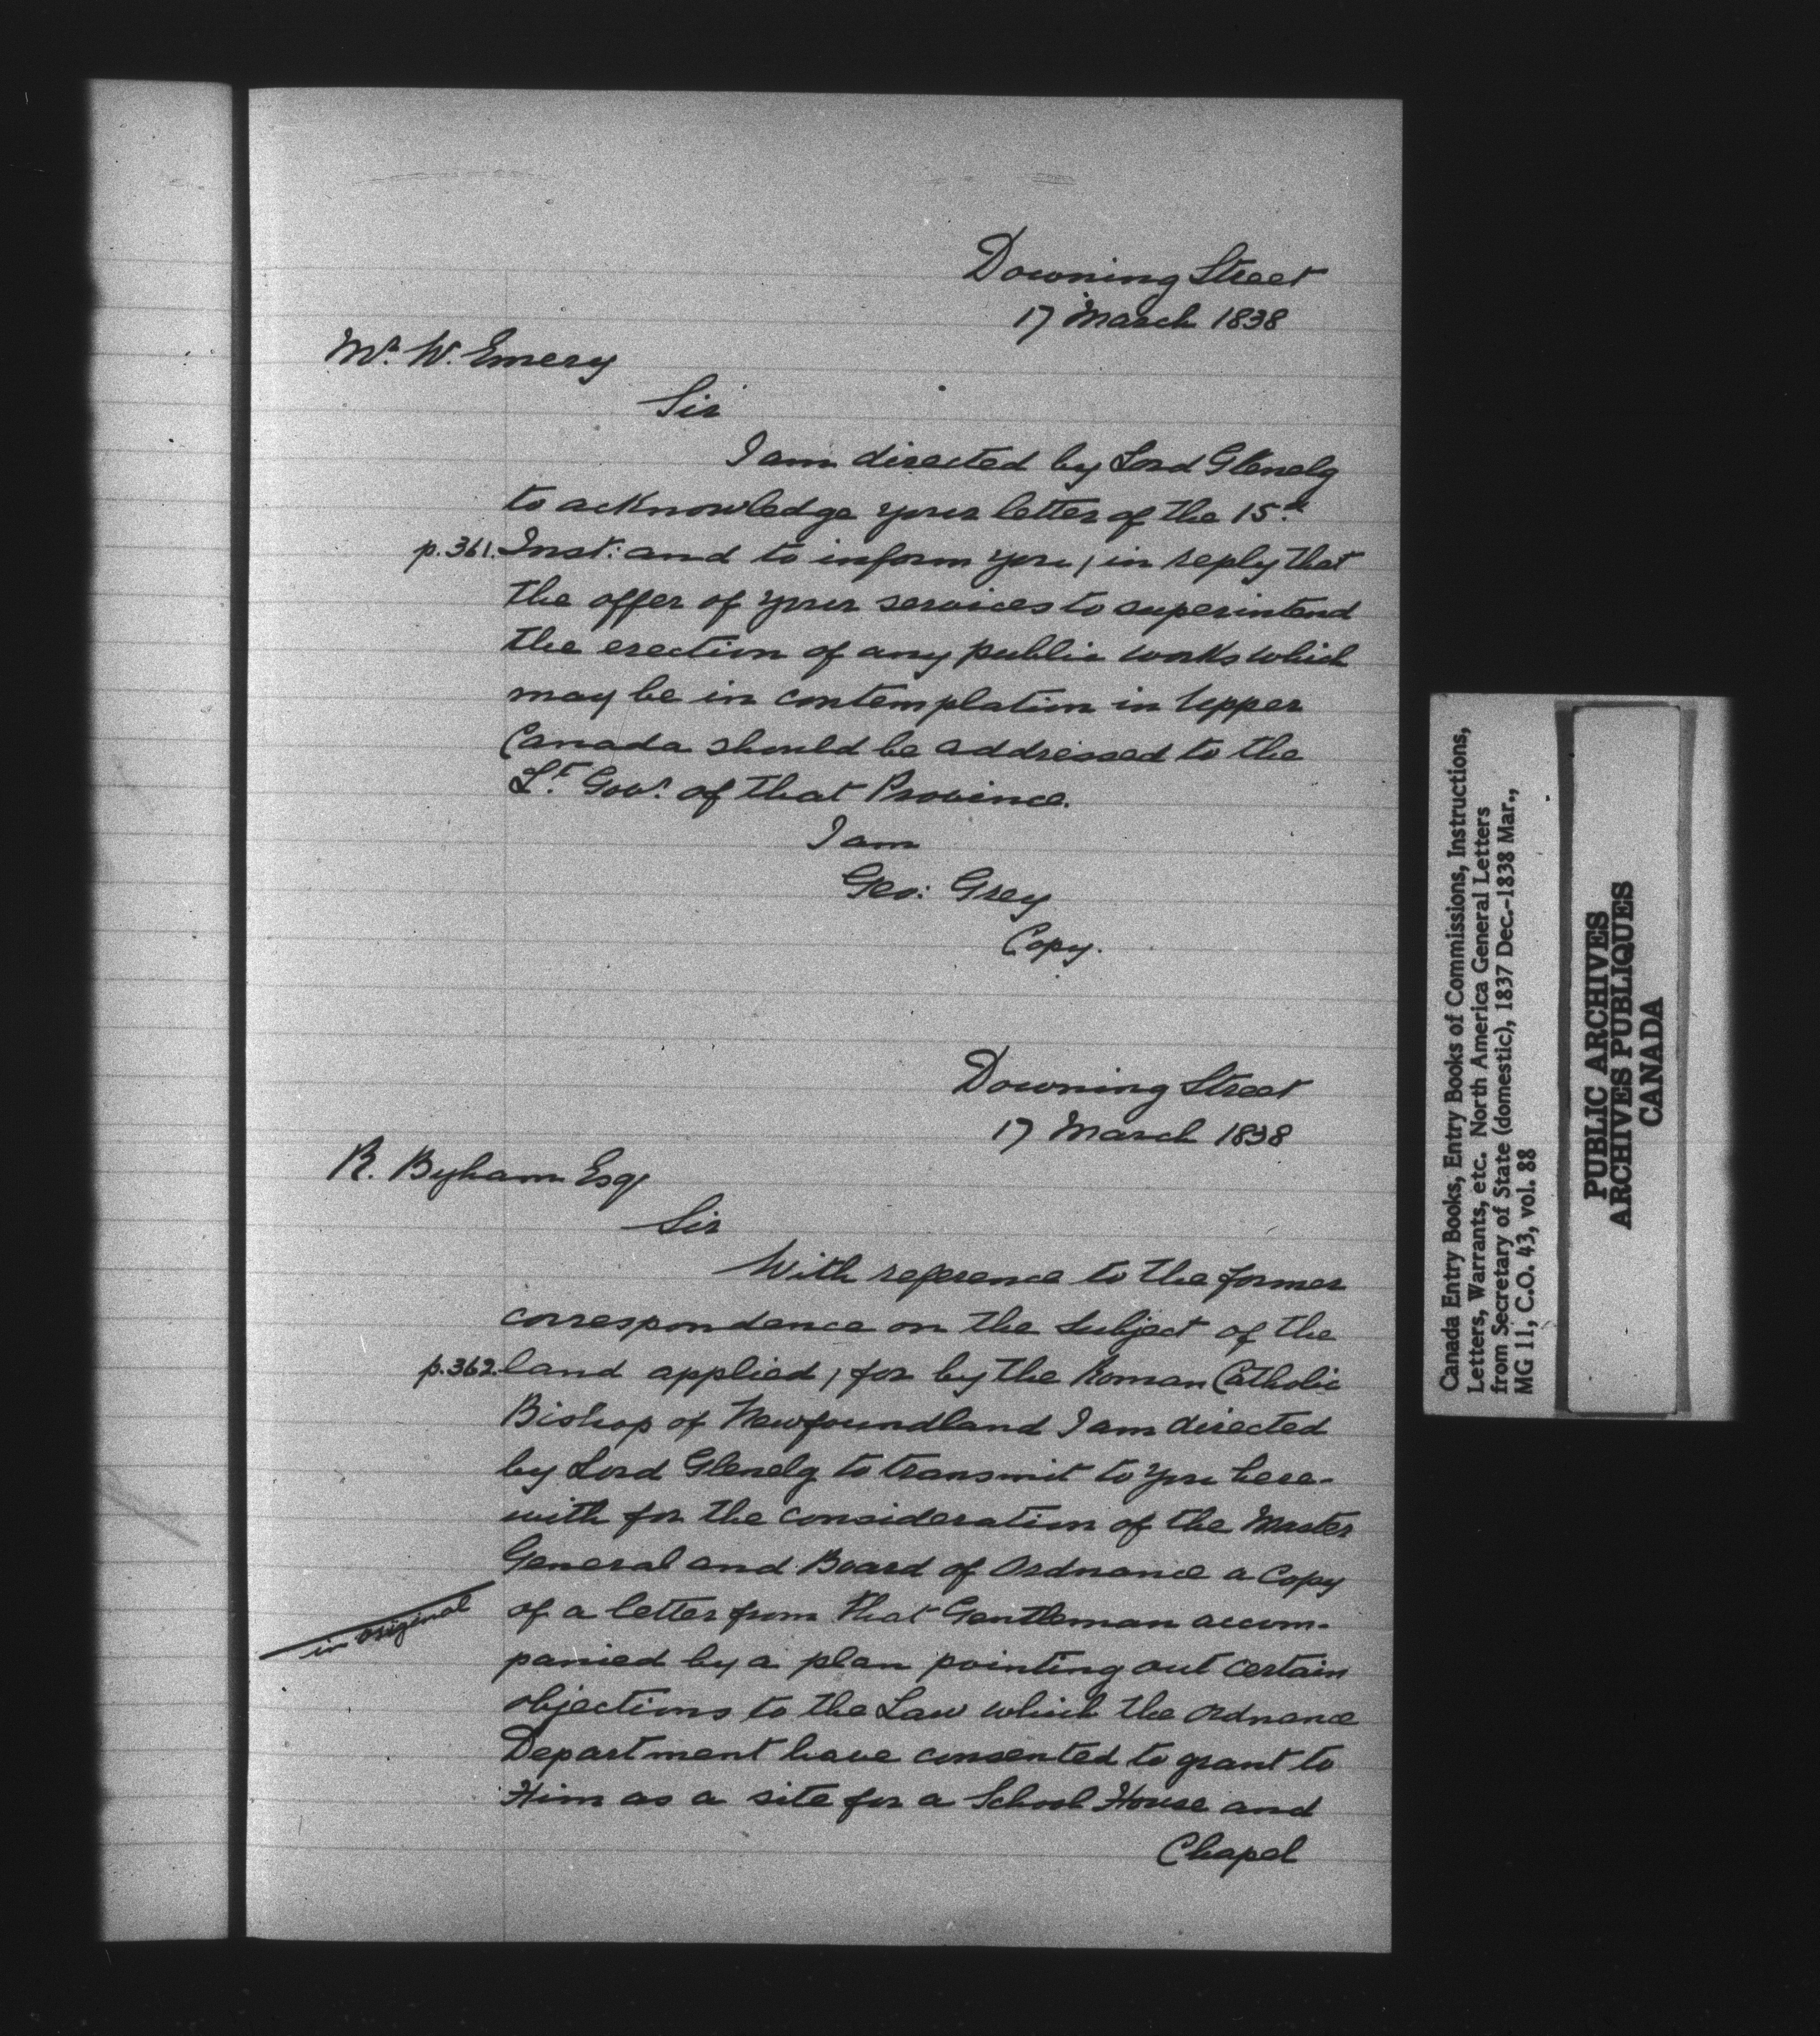 Downing Street
17 March 1838
Mr. W. Emery
Sir
I am directed by Lord Glenelg
to acknowledge your letter of the 15th
p.361. Inst: and to inform you, in reply that
the offer of your services to superintend
the erection of any public works which
may be in contemplation in Upper
Canada should be addressed to the
Lt. Govr. of that Province.
I am
Geo: Grey
Copy.
Downing Street
17 March 1838
R. Byham Esq
Sir
With reference to the former
correspondence on the subject of the
p.362. land applied, for by the Roman Catholic
Bishop of Newfoundland I am directed
by Lord Glenelg to transmit to you here-
with for the consideration of the Master
General and Board of Ordnance a Copy
in original
of a letter from that Gentleman accom-
panied by a plan pointing out certain
objections to the Law which the Ordnance
Department have consented to grant to
Him as a site for a School House and
Chapel
Canada Entry Books, Entry Books of Commissions, Instructions,
Letters, Warrants, etc. North America General Letters
from Secretary of State (domestic), 1837 Dec.-1838 Mar.,
MG 11, C.O. 43, vol. 88
PUBLIC ARCHIVES
ARCHIVES PUBLIQUES
CANADA